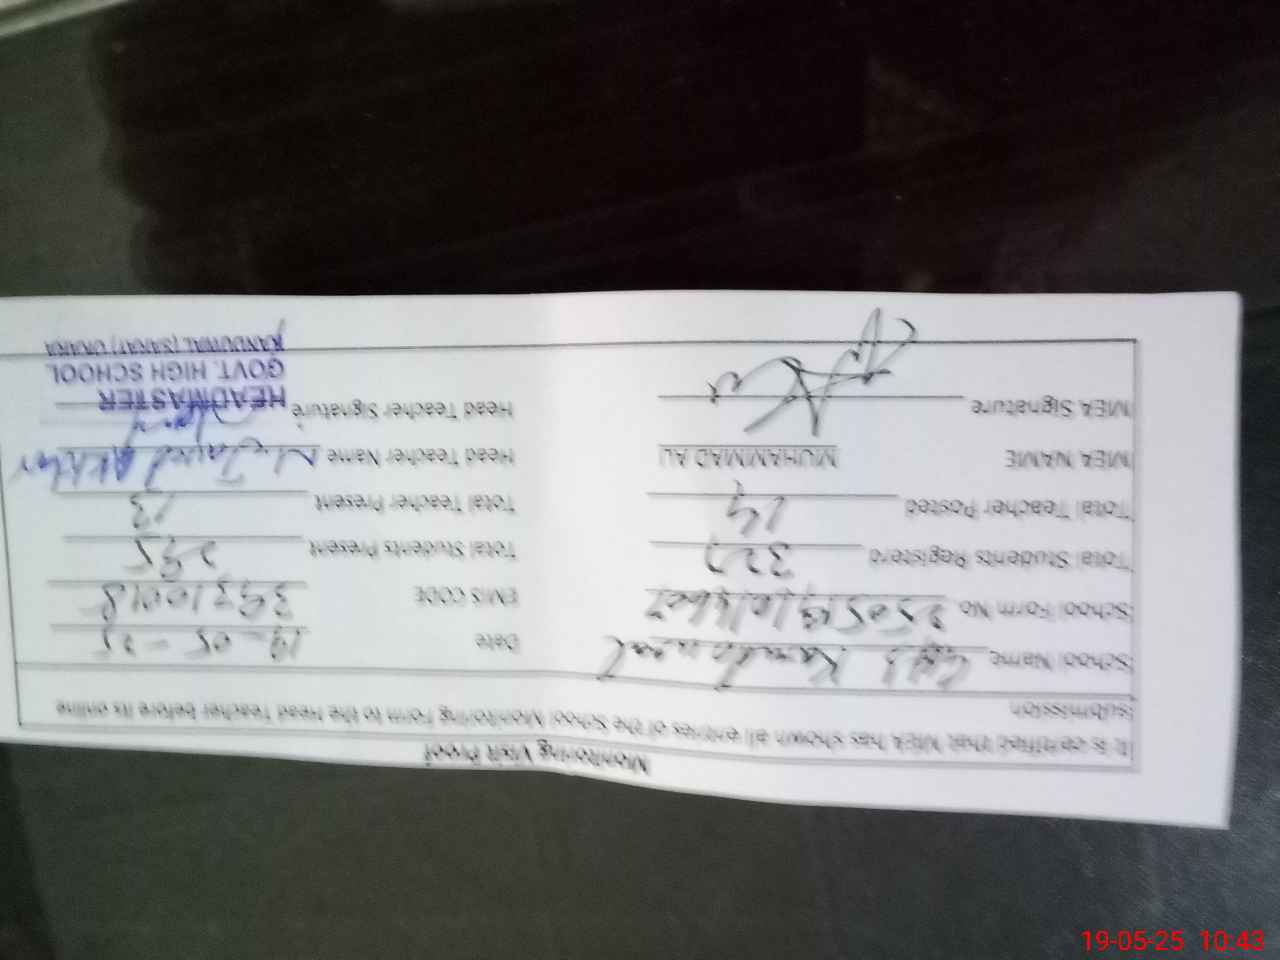 Monitoring Visit Proof
It is certified that MEA has shown all entries of the School Monitoring Form to the Head Teacher before its online
submission
School Name GHS Kanduwal Date 19-05-25
School Form No EMIS CODE
Total Students Registerd 327 Total Students Present 295
Total Teacher Posted 14 Total Teacher Present 13
MEA NAME MUHAMMAD ALI Head Teacher Name M. Javed Akhtar
MEA Signature Head Teacher Signature
HEADMASTER
GOVT. HIGH SCHOOL
KANDUWAL (SAHAT) OKARA
19-05-25 10:43